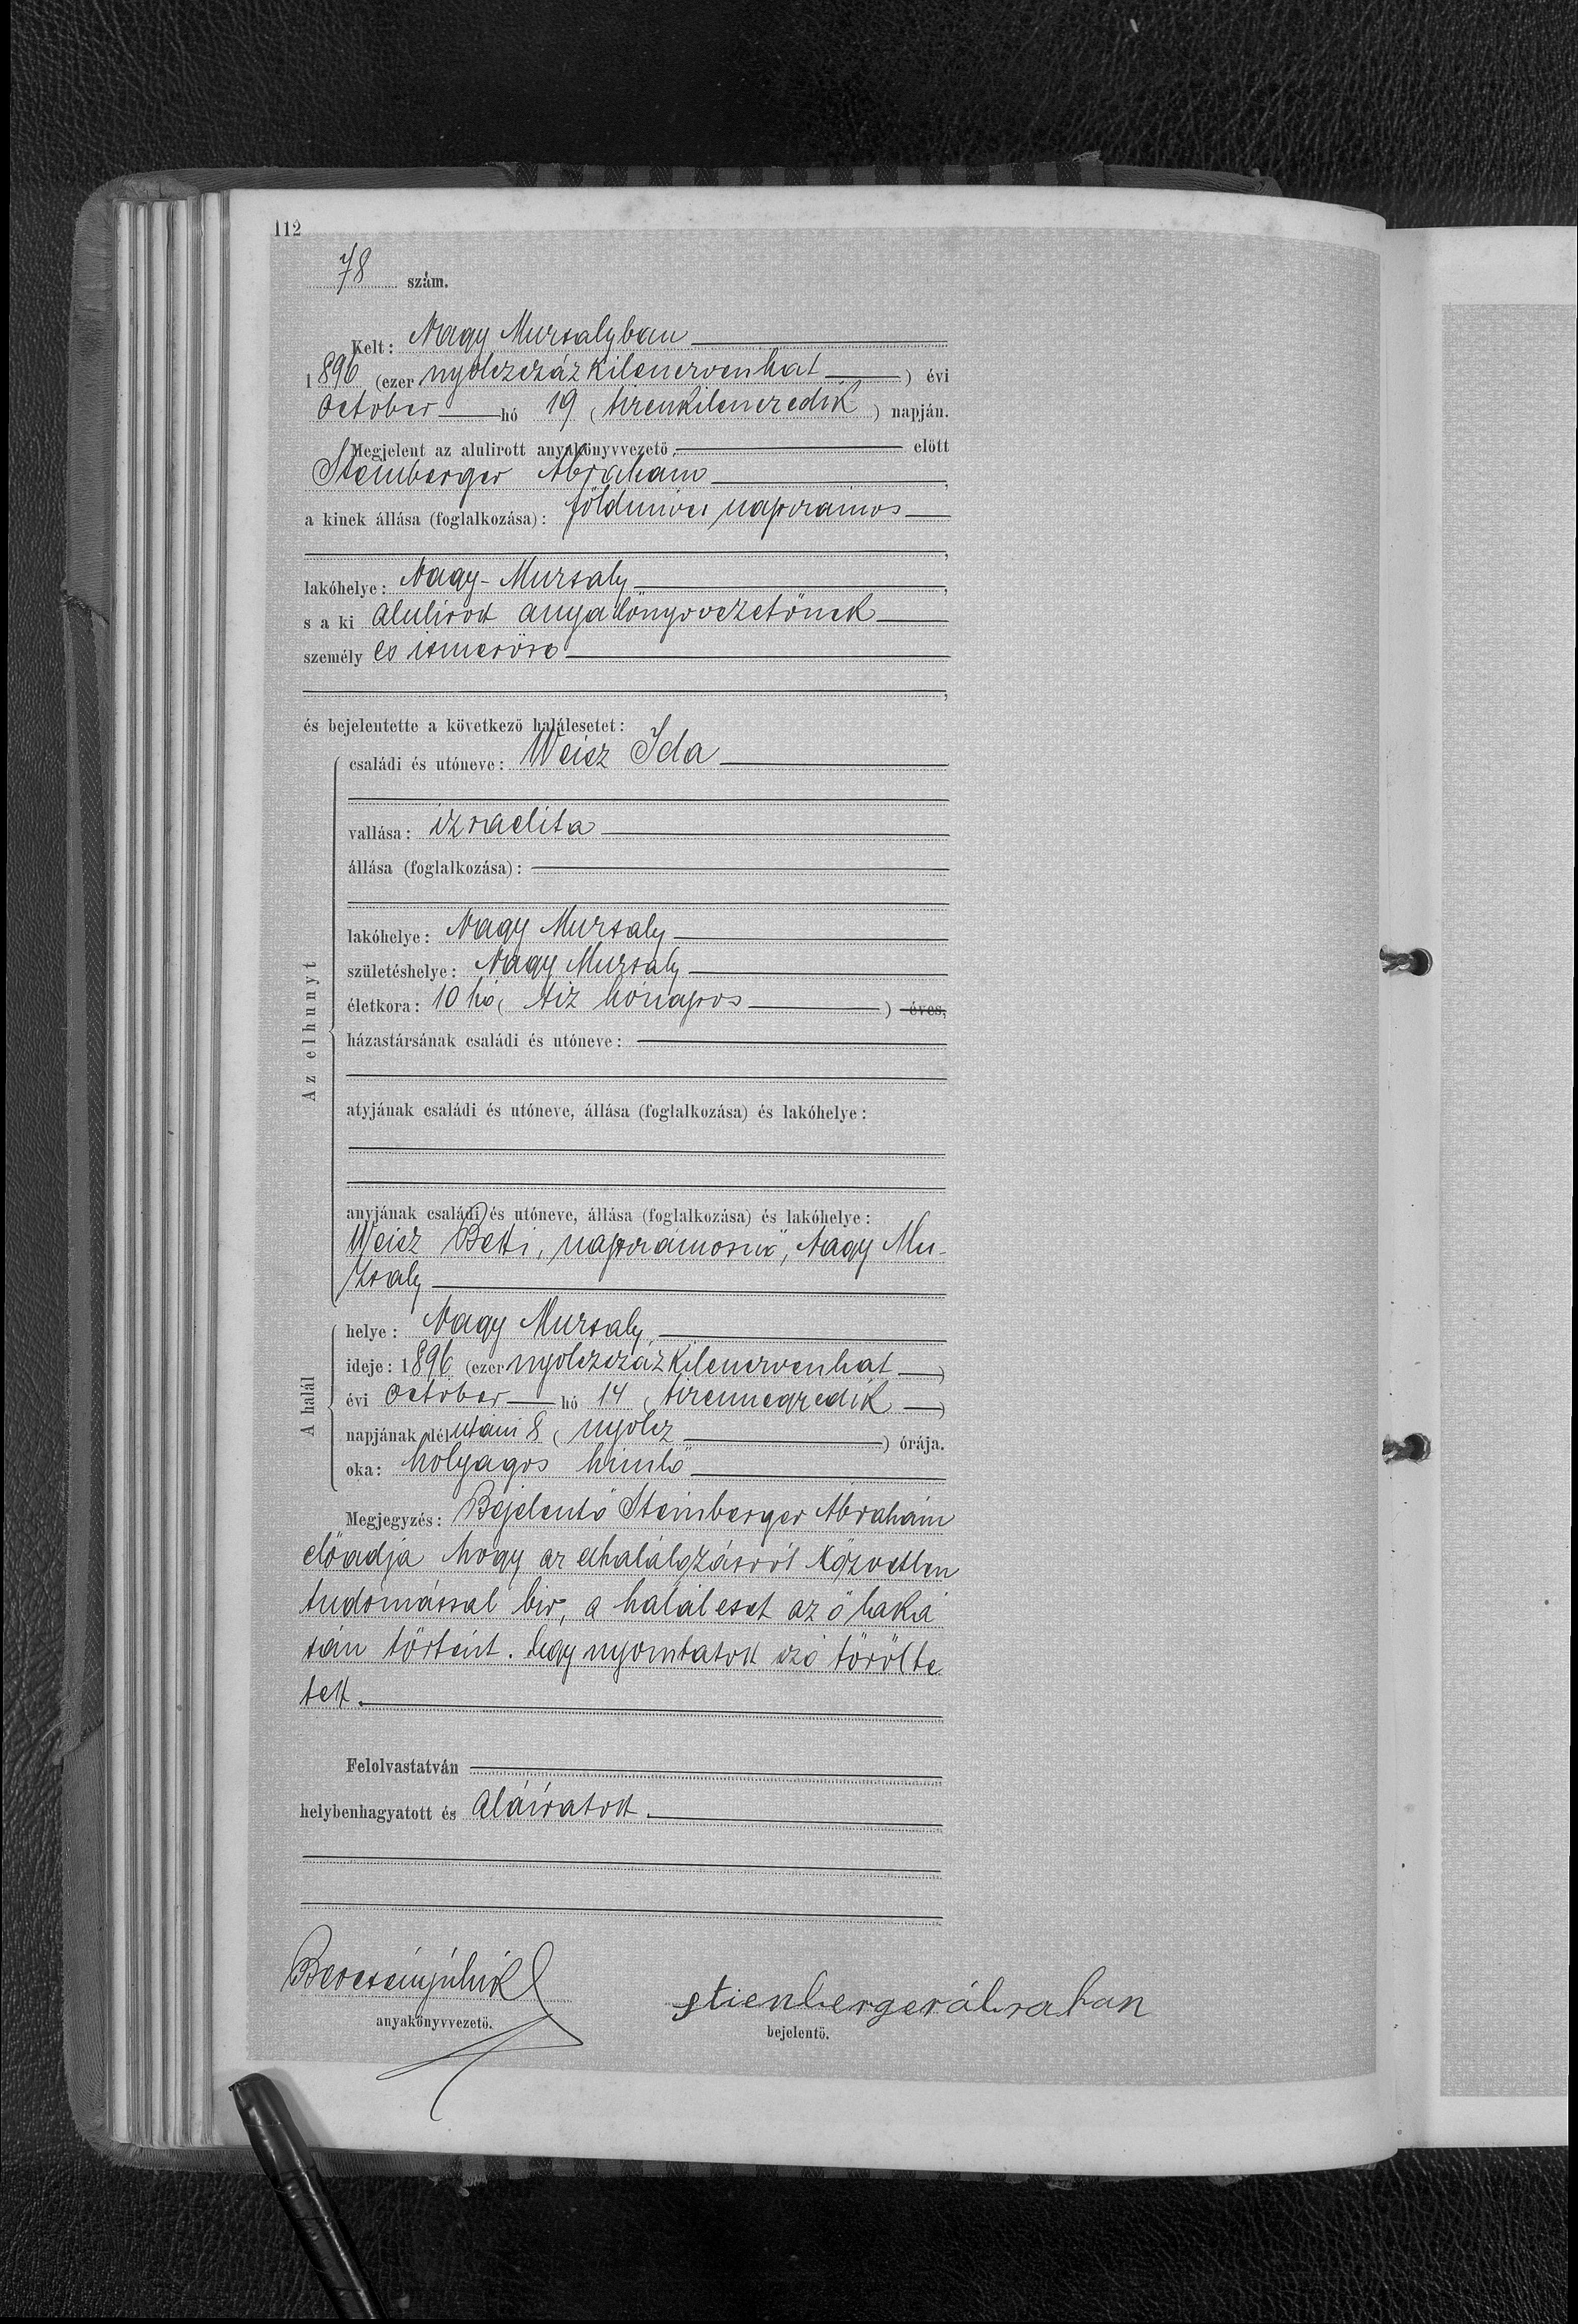 112
78 szám.
Kelt: Nagy Muzsalyban
1896 (ezer nyolczszáz kilenczvenhat) évi
October hó 19 (tizenkilenczedik) napján.
Megjelent az alulirott anyakönyvvezető, előtt
Steinberger Abraham,
a kinek állása (foglalkozása): földmives napszámos
,
lakóhelye: Nagy-Muzsaly,
s a ki alulirott anyakönyvvezetőnek
személyes ismerőse
,
és bejelentette a következő halálesetet:
Az elhunyt
családi és utóneve: Weisz Ida
vallása: izraelita
állása (foglalkozása):
lakóhelye: Nagy Muzsaly
születéshelye: Nagy Muzsaly
életkora: 10 hó (tiz hónapos) éves,
házastársának családi és utóneve:
atyjának családi és utóneve, állása (foglalkozása) és lakóhelye:
anyjának családi és utóneve, állása (foglalkozása) és lakóhelye:
Weisz Betti, napszámosnő, Nagy Mu-
zsaly
A halál
helye: Nagy Muzsaly,
ideje: 1896 (ezer nyolczszáz kilenczvenhat)
évi October hó 14 (tizennegyedik)
napjának délutáni 8 (nyolcz) órája.
oka: hólyagos himlő
Megjegyzés: Bejelentő Steinberger Abrahám
előadja hogy az elhalálozásról közvetlen
tudomással bir, a haláleset az ő laká
sán történt. Egy nyomtatott szó törölte
tett.
Felolvastatván
helybenhagyatott és aláiratott.
anyakönyvvezető.
stienbergerábrahan
bejelentő.